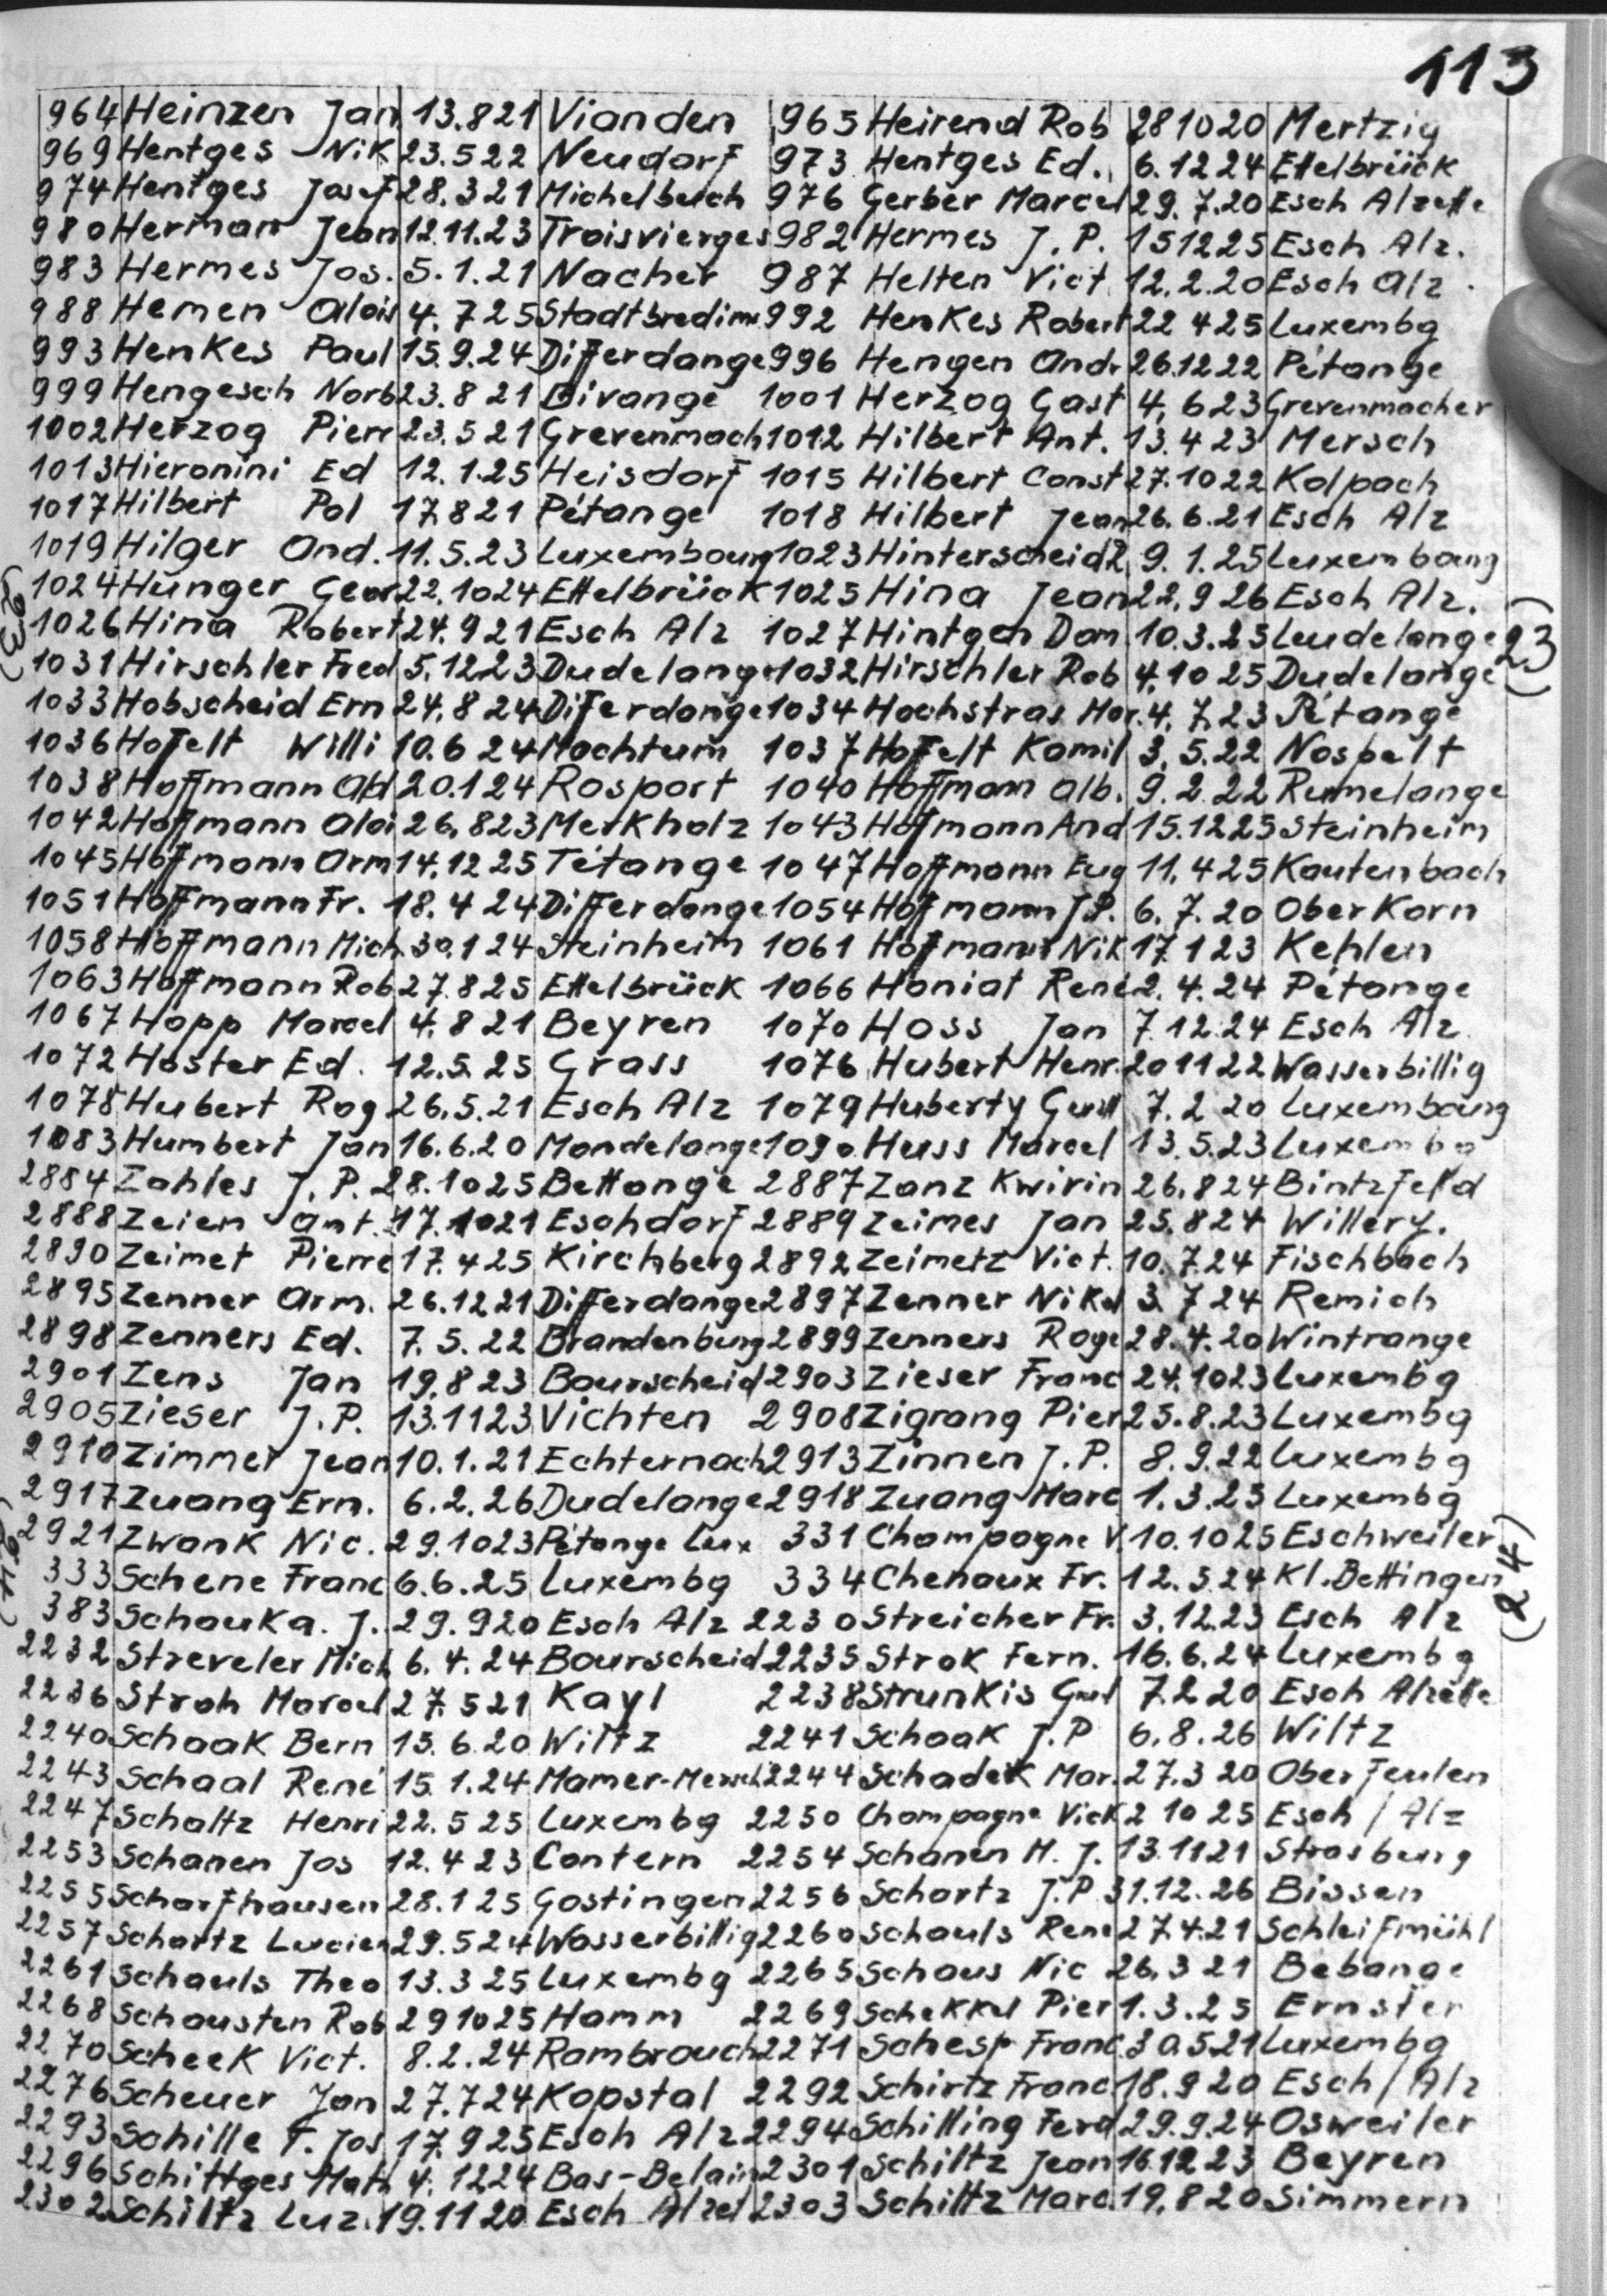 113
964 Heinzen Jan 13.8 21 Vianden 965 Heirend Rob 28 10 20 Mertzig
969 Hentges Nik 23.5 22 Neudorf 973 Hentges Ed. 6.12 24 Ettelbrück
974 Hentges Josef 28.3 21 Michelbuch 976 Gerber Marcel 29.7.20 Esch Alzette
980 Herman Jean 12.11.23 Troisvierges 982 Hermes J.P. 15 12 25 Esch Alz.
983 Hermes Jos. 5.1.21 Nacher 987 Helten Vict 12.2.20 Esch Alz.
988 Hemen Alois 4.7 25 Stadtbredim 992 Henkes Robert 22 4 25 Luxembg
993 Henkes Paul 15.9.24 Differdange 996 Hengen Andr 26.12 22 Pétange
999 Hengesch Norb 23.8 21 Bivange 1001 Herzog Gast 4.6 23 Grevenmacher
1002 Herzog Pierr 23.5 21 Grevenmach 1012 Hilbert Ant. 13.4 23 Mersch
1013 Hieronini Ed 12.1.25 Heisdorf 1015 Hilbert Const 27.10 22 Kolpach
1017 Hilbert Pol 17.8 21 Pétange 1018 Hilbert Jean 26.6.21 Esch Alz
1019 Hilger And. 11.5.23 Luxembourg 1023 Hinterscheid 9.1.25 Luxembourg
1024 Hunger Geor 22.10 24 Ettelbrück 1025 Hina Jean 22.9 26 Esch Alz.
(23) 1026 Hina Robert 24.9 21 Esch Alz 1027 Hintgen Dom. 10.3.25 Leudelange (23)
1031 Hirschler Fred 5.12 23 Dudelange 1032 Hirschler Rob 4.10 25 Dudelange
1033 Hobscheid Ern 24.8 24 Diferdange 1034 Hochstras Mar. 4.7.23 Pétange
1036 Hoffelt Willi 10.6 24 Machtum 1037 Hoffelt Kamil 3.5.22 Nospelt
1038 Hoffmann 20.1 24 Rosport 1040 Hoffmann Alb. 9.2.22 Rumelange
1042 Hoffmann Aloi 26.8 23 Merkholz 1043 Hoffmann And 15.12 25 Steinheim
1045 Hoffmann Arm 14.12 25 Tétange 1047 Hoffmann Eug 11.4 25 Kautenbach
1051 Hoffmann Fr. 18.4 24 Differdange 1054 Hoffmann J.P. 6.7.20 Oberkorn
1058 Hoffmann Mich. 30.1 24 Steinheim 1061 Hoffmann Nik 17.1 23 Kehlen
1063 Hoffmann Rob 27.8 25 Ettelbrück 1066 Honiat René 2.4.24 Pétange
1067 Hopp Marcel 4.8 21 Beyren 1070 Hoss Jan 7.12.24 Esch Alz
1072 Hoster Ed. 12.5.25 Grass 1076 Hubert Henr. 20 11 22 Wasserbillig
1078 Hubert Rog 26.5.21 Esch Alz 1079 Huberty 7.2 20 Luxembourg
1083 Humbert Jan 16.6.20 Mondelange 1090 Huss Marcel 13.5.23 Luxembg
2884 Zahles J.P. 28.10 25 Bettange 2887 Zanz Kwirin 26.8 24 Bintzfeld
2888 Zeien Ant. 17.10 21 Eschdorf 2889 Zeimes Jan 25.8 24 Willery.
2890 Zeimet Pierre 17.4 25 Kirchberg 2892 Zeimetz Vict. 10.7.24 Fischbach
2895 Zenner Arm. 26.12 21 Differdange 2897 Zenner Nikol 3.7 24 Remich
2898 Zenners Ed. 7.5.22 Brandenburg 2899 Zenners Roge 28.4.20 Wintrange
2901 Zens Jan 19.8 23 Bourscheid 2903 Zieser Franc 24.10 23 Luxembg
2905 Zieser J.P. 13.11 23 Vichten 2908 Zigrang Pier 25.8.23 Luxembg
2910 Zimmer Jean 10.1.21 Echternach 2913 Zinnen J.P. 8.9.22 Luxembg
2917 Zuang Ern. 6.2.26 Dudelange 2918 Zuang Marc 1.3.23 Luxembg
2921 Zwank Nic. 29.10 23 Pétange Lux 331 Champagne V. 10.10 25 Eschweiler
(24) 333 Schene Franc 6.6.25 Luxembg 334 Chenaux Fr. 12.3 24 Kl.Bettingen (24)
383 Schouka. J. 29.9 20 Esch Alz 2230 Streicher Fr. 3.12.23 Esch Alz
2232 Streveler Mich 6.4.24 Bourscheid 2235 Strok Fern. 16.6.24 Luxembg
2236 Stroh Marcel 27.5 21 Kayl 2238 Strunkis 7.2.20 Esch Alzette
2240 Schaak Bern 15.6.20 Wiltz 2241 Schaak J.P 6.8.26 Wiltz
2243 Schaal René 15.1.24 Mamer-Mersch 2244 Schadek Mar. 27.3 20 Oberfeulen
2247 Schaltz Henri 22.5 25 Luxembg 2250 Champagne Vick 2 10 25 Esch / Alz
2253 Schanen Jos 12.4 23 Contern 2254 Schanen M.J. 13.11 21 Strasburg
2255 Scharfhausen 28.1 25 Gostingen 2256 Schartz J.P. 31.12.26 Bissen
2257 Schartz Lucien 29.5 24 Wasserbillig 2260 Schauls Rene 27.4.21 Schleifmühl
2261 Schauls Theo 13.3 25 Luxembg 2265 Schaus Nic 26.3 21 Bebange
2268 Schausten Rob 29 10 25 Hamm 2269 Schekkel Pier 1.3.25 Ernster
2270 Scheek Vict. 8.2.24 Rambrouch 2271 Schesp Franc. 30.5.21 Luxembg
2276 Scheuer Jan 27.7 24 Kopstal 2292 Schirtz Franc 18.9 20 Esch / Alz
2293 Schille F. Jos 17.9 25 Esch Alz 2294 Schilling Ferd 29.9.24 Osweiler
2296 Schittges Math 4.12 24 Bas-Belain 2301 Schiltz Jean 16.12 23 Beyren
2302 Schiltz Luz. 19.11 20 Esch Alzet 2303 Schiltz Marc. 19.8 20 Simmern